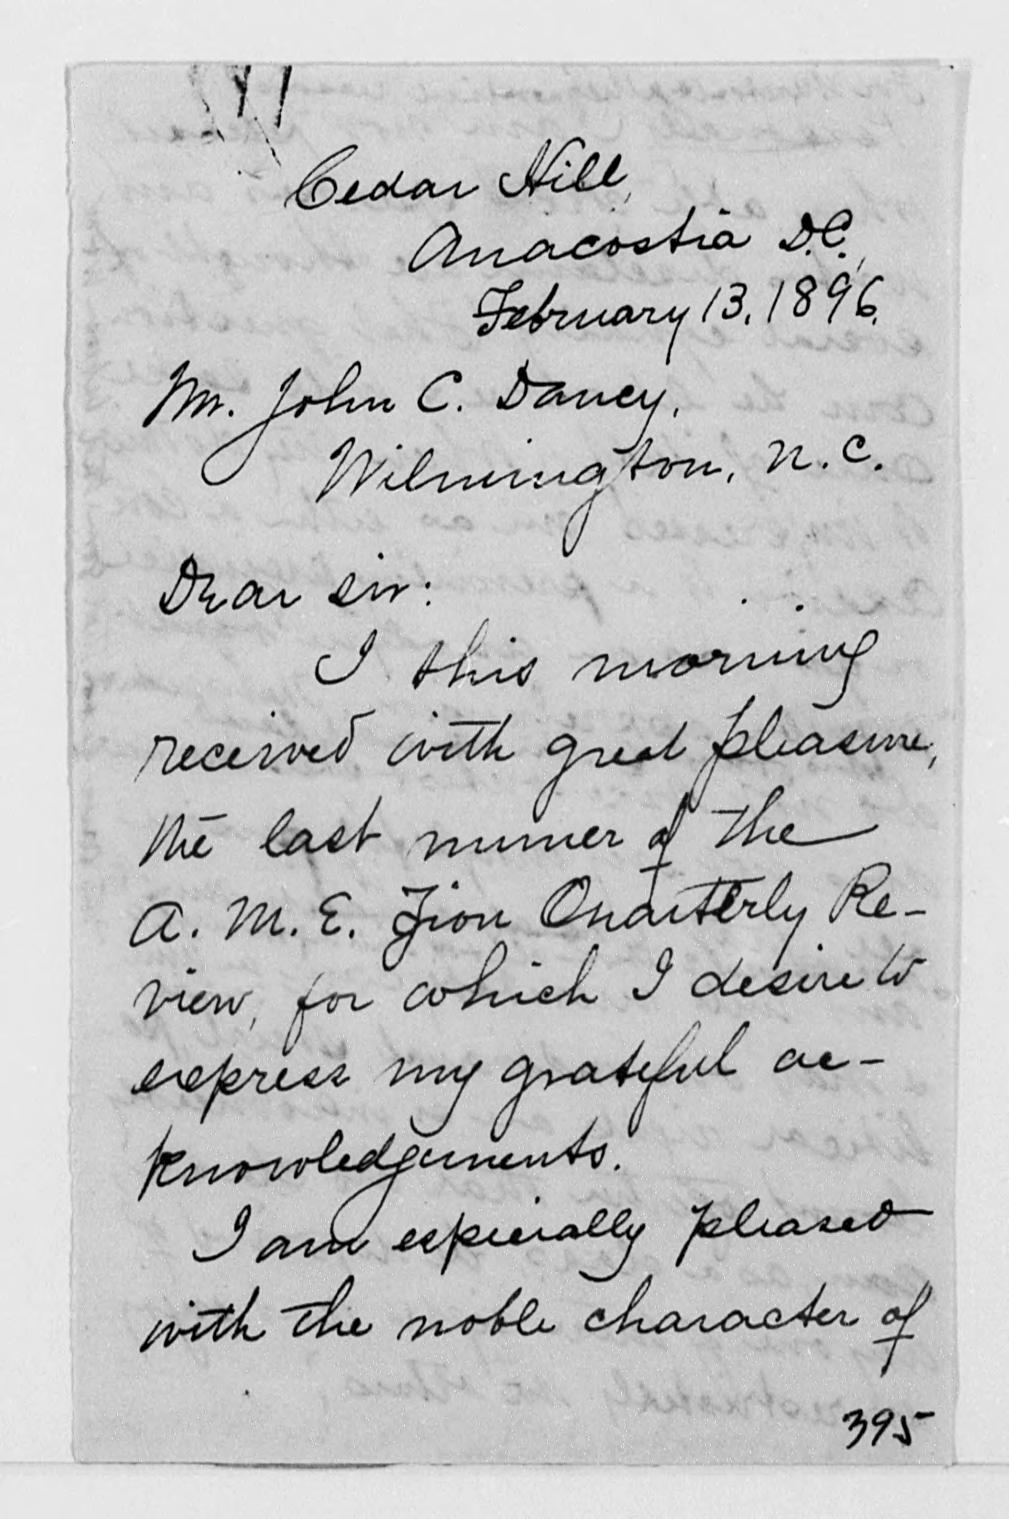 Cedar Hill,
Anacostia D.C.,
February 13, 1896.
Mr. John C. Dancy,
Wilmington, N.C.
Dear Sir:
I this morning
received with great pleasure,
the last numer of the
A. M. E. Zion Quarterly Re-
view, for which I desire to
express my grateful ac-
knowledgements.
I am especially pleased
with the noble character of
395